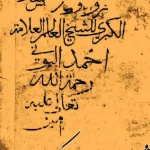 الكبرى للشيخ العالم العلامة
احمد البوني
رحمة الله
تعالى عليه
امين